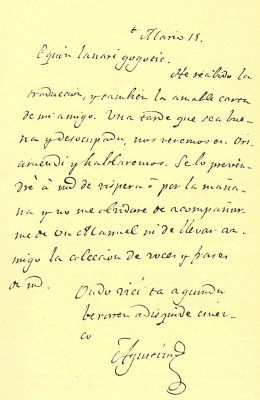 Marzo 15.
Equin lanari gogotic.
He recibido la
traduccion, y tambien la amable carta
de mi amigo. Una tarde que sea bue-
na y desocupada, nos veremos en Ori-
amendi y hablaremos. Se lo preven-
dré à md de vispera ò por la maña-
na y no me olvidare de acompañar-
me de Dn Manuel ni de llevar con-
migo la coleccion de voces y frases
de md.
Ondo vici ta agindu
beraren adisquide
Agustin